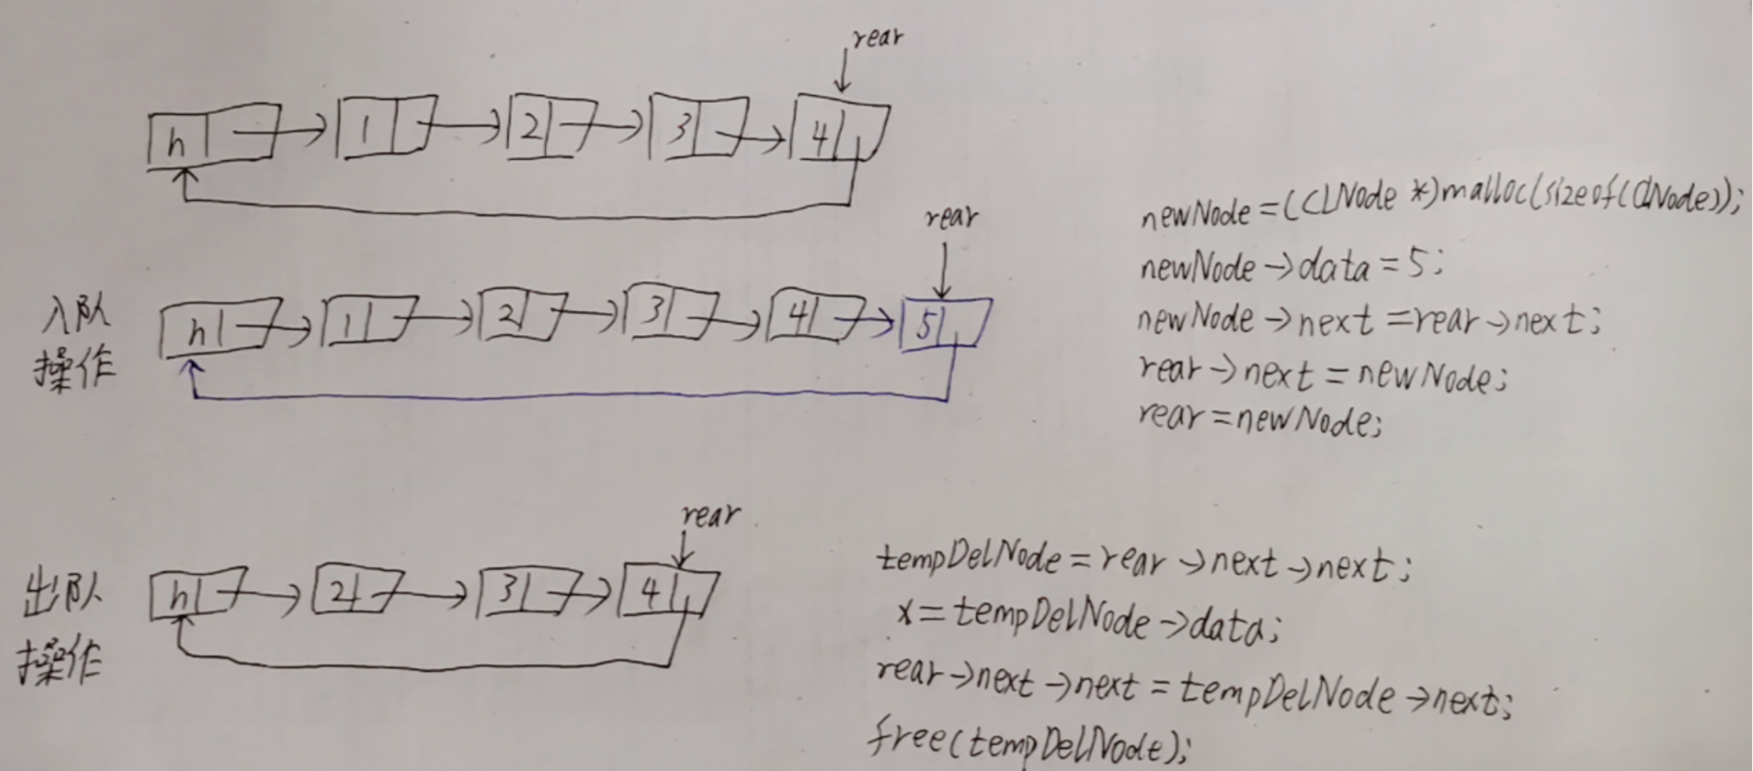 rear
h 1 2 3 4
rear
入队
操作
h 1 2 3 4 5
newNode=(CLNode *)malloc(sizeof(CLNode));
newNode→data=5;
newNode→next=rear→next;
rear→next=newNode;
rear=newNode;
rear
出队
操作
h 2 3 4
tempDelNode=rear→next→next;
x=tempDelNode→data;
rear→next→next=tempDelNode→next;
free(tempDelNode);